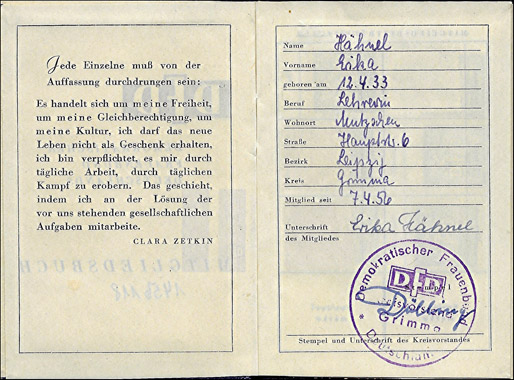 Jede Einzelne muß von der
Auffassung durchdrungen sein:
Es handelt sich um meine Freiheit,
um meine Gleichberechtigung, um
meine Kultur, ich darf das neue
Leben nicht als Geschenk erhalten,
ich bin verpflichtet, es mir durch
tägliche Arbeit, durch täglichen
Kampf zu erobern. Das geschieht,
indem ich an der Lösung der
vor uns stehenden gesellschaftlichen
Aufgaben mitarbeite.
CLARA ZETKIN
Name Hähnel
Vorname Erika
geboren am 12.4.33
Beruf Lehrerin
Wohnort Mutzschen
Straße Hauptstr. 6
Bezirk Leipzig
Kreis Grimma
Mitglied seit 7.4.56
Unterschrift Erika Hähnel
des Mitgliedes
Demokratischer Frauenbund
Deutschlands
DFD
Kreisvorstand
Grimma
Stempel und Unterschrift des Kreisvorstandes